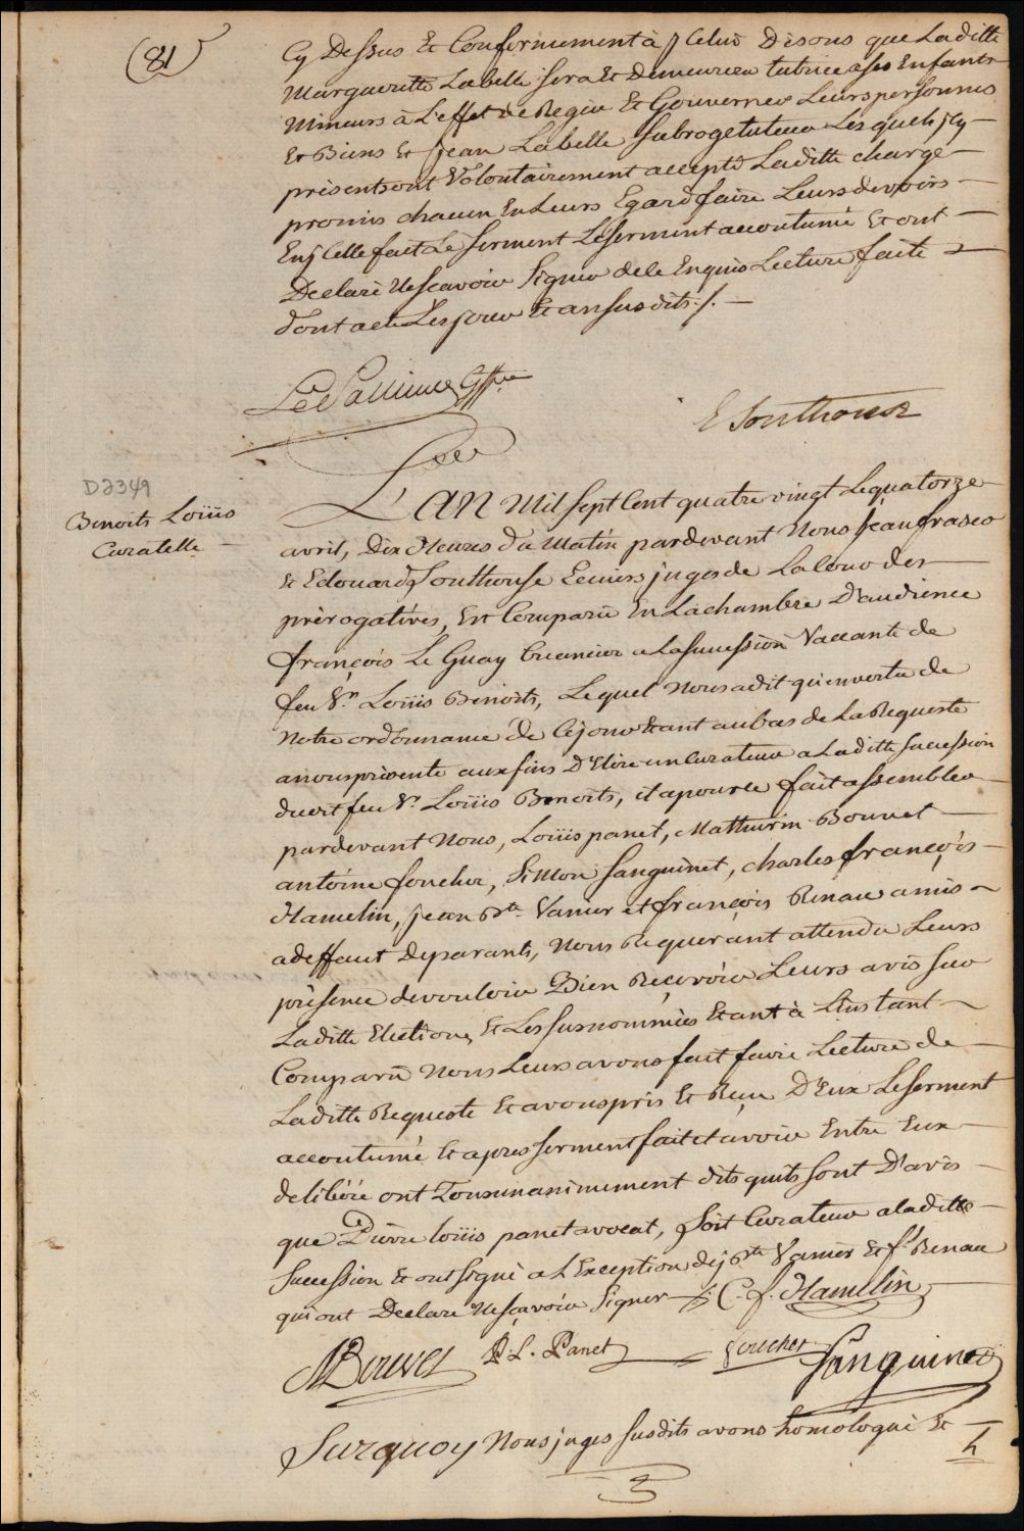 81
Cy Dessus Et Conformement à jCelui Disons que Laditte
Margueritte Labelle Sera Et Demeurera tutrice a Ses Enfants
Mineurs à L'effet de Regir Et Gouverner Leurs personnes
Et Biens Et jean Labelle Subrogetuteur Lesquels jCy
présents ont Volontairement accepté Laditte charge
promis chacun En Leurs Egard faire Leurs devoirs
En jCelle fait Le Serment Leserment accoutumé Et ont
Declaré Nescavoir Signer de le Enquis Lecture faite
dont acte Les jour Et an Susdits ./.
LePallieur Gffier
E Southouse
D2349
Benoits Loüis
Curatelle
L'AN Mil Sept Cent quatre vingt Le quatorze
avril, Dix Heures Du Matin pardevant Nous jean fraser
Et Edouard Southouse Ecuiers juges de La Cour des
prérogatives, Est Comparu En La chambre D'audience
françois Le Guay Creancier a La Succession Vaccante de
feu Sr. Loüis Benoits, Lequel Nous a dit qu'en vertu de
Notre ordonnance de Cejour Etant au bas de La Requeste
a nous présenté aux fins D'Elire un Curateur a Laditte Succession
dudit feu Sr. Loüis Benoits, il a pour ce fait assembler
pardevant Nous, Loüis panet, Mathurin Bouvet
antoine foucher, Simon Sanguinet, charles françois
Hamelin, jean Bte. Vanier et françois Renau amis
a deffaut de parants, Nous Requerant attendu Leurs
présence de vouloir Bien Reçevoir Leurs avis Sur
Laditte Election, Et Les Susnommés Etant à Linstant
Comparu Nous Leurs avons fait faire Lecture de
Laditte Requeste Et avons pris Et Reçu D'Eux Leserment
accoutumé Et apres Serment fait et avoir Entre Eux
deliberé ont Tous unanimement dits quils Sont D'avis
que Pierre loüis panet avocat, Soit Curateur a laditte
Succession Et ont Signé a L'Exception de j Bte Vanier Et f. Renau
qui ont Declaré Nesçavoir Signer ./. C. f. Hamelin
MBouvet P. L. Panet foucher Sanguinet
Surquoy Nous juges Susdits avons homologué Et